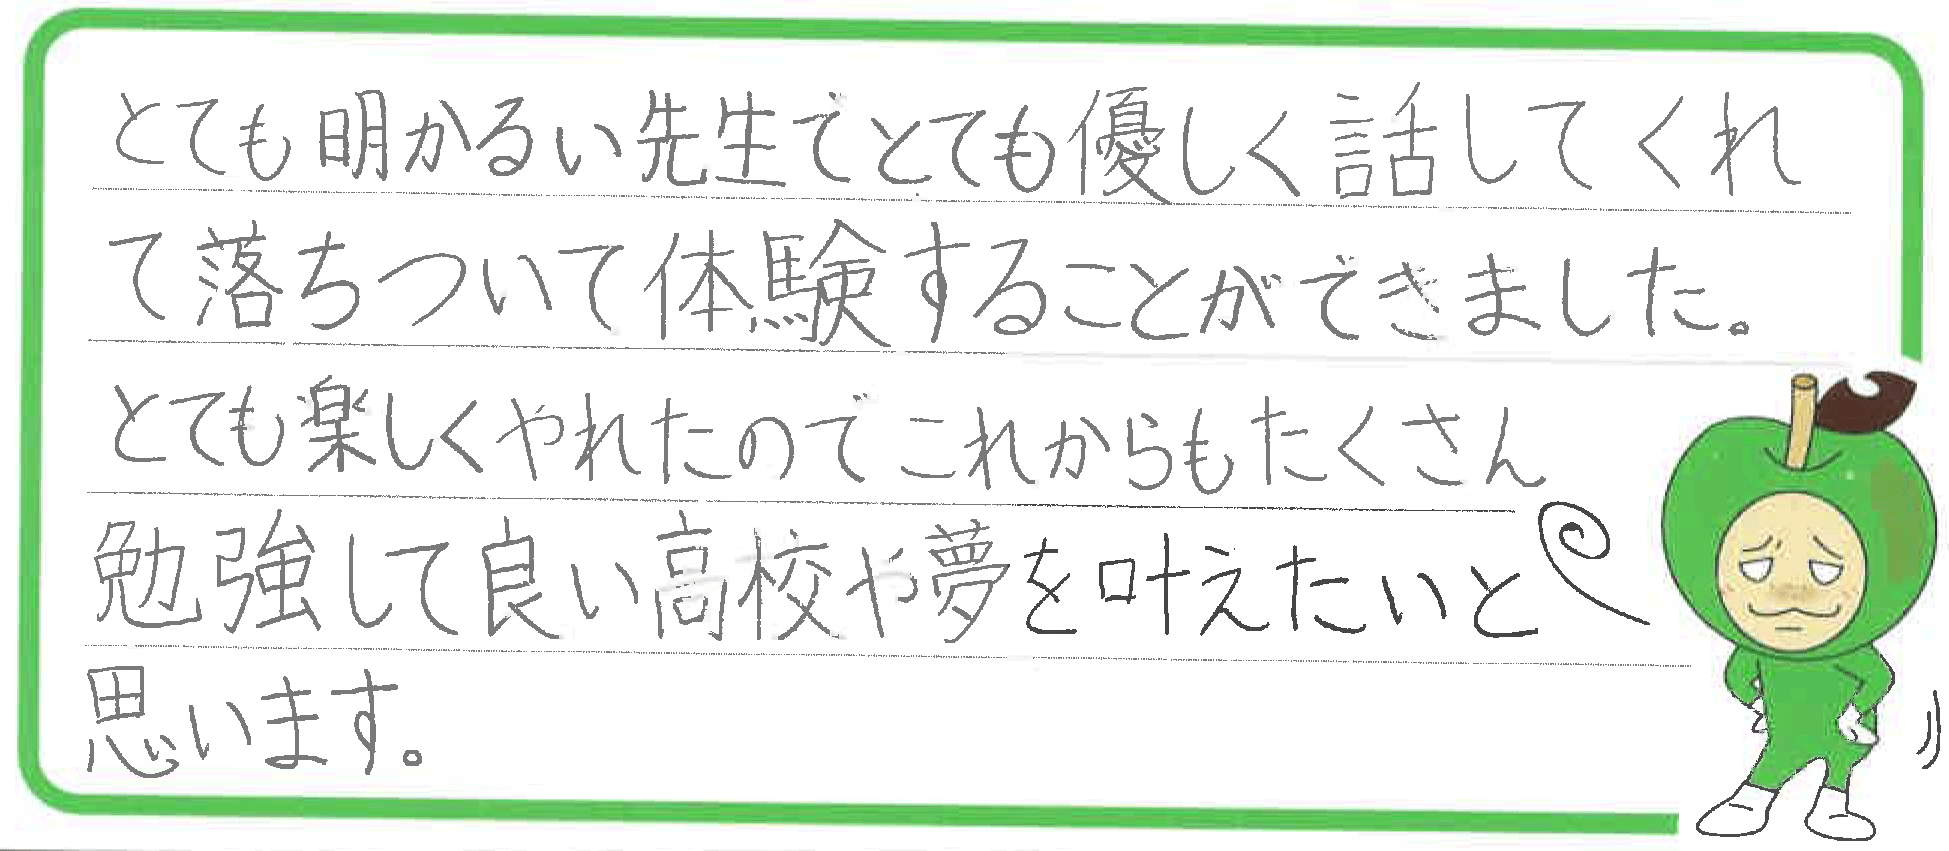 とても明かるい先生でとても優しく話してくれ
て落ちついて体験することができました。
とても楽しくやれたのでこれからもたくさん
勉強して良い高校や夢を叶えたいと
思います。